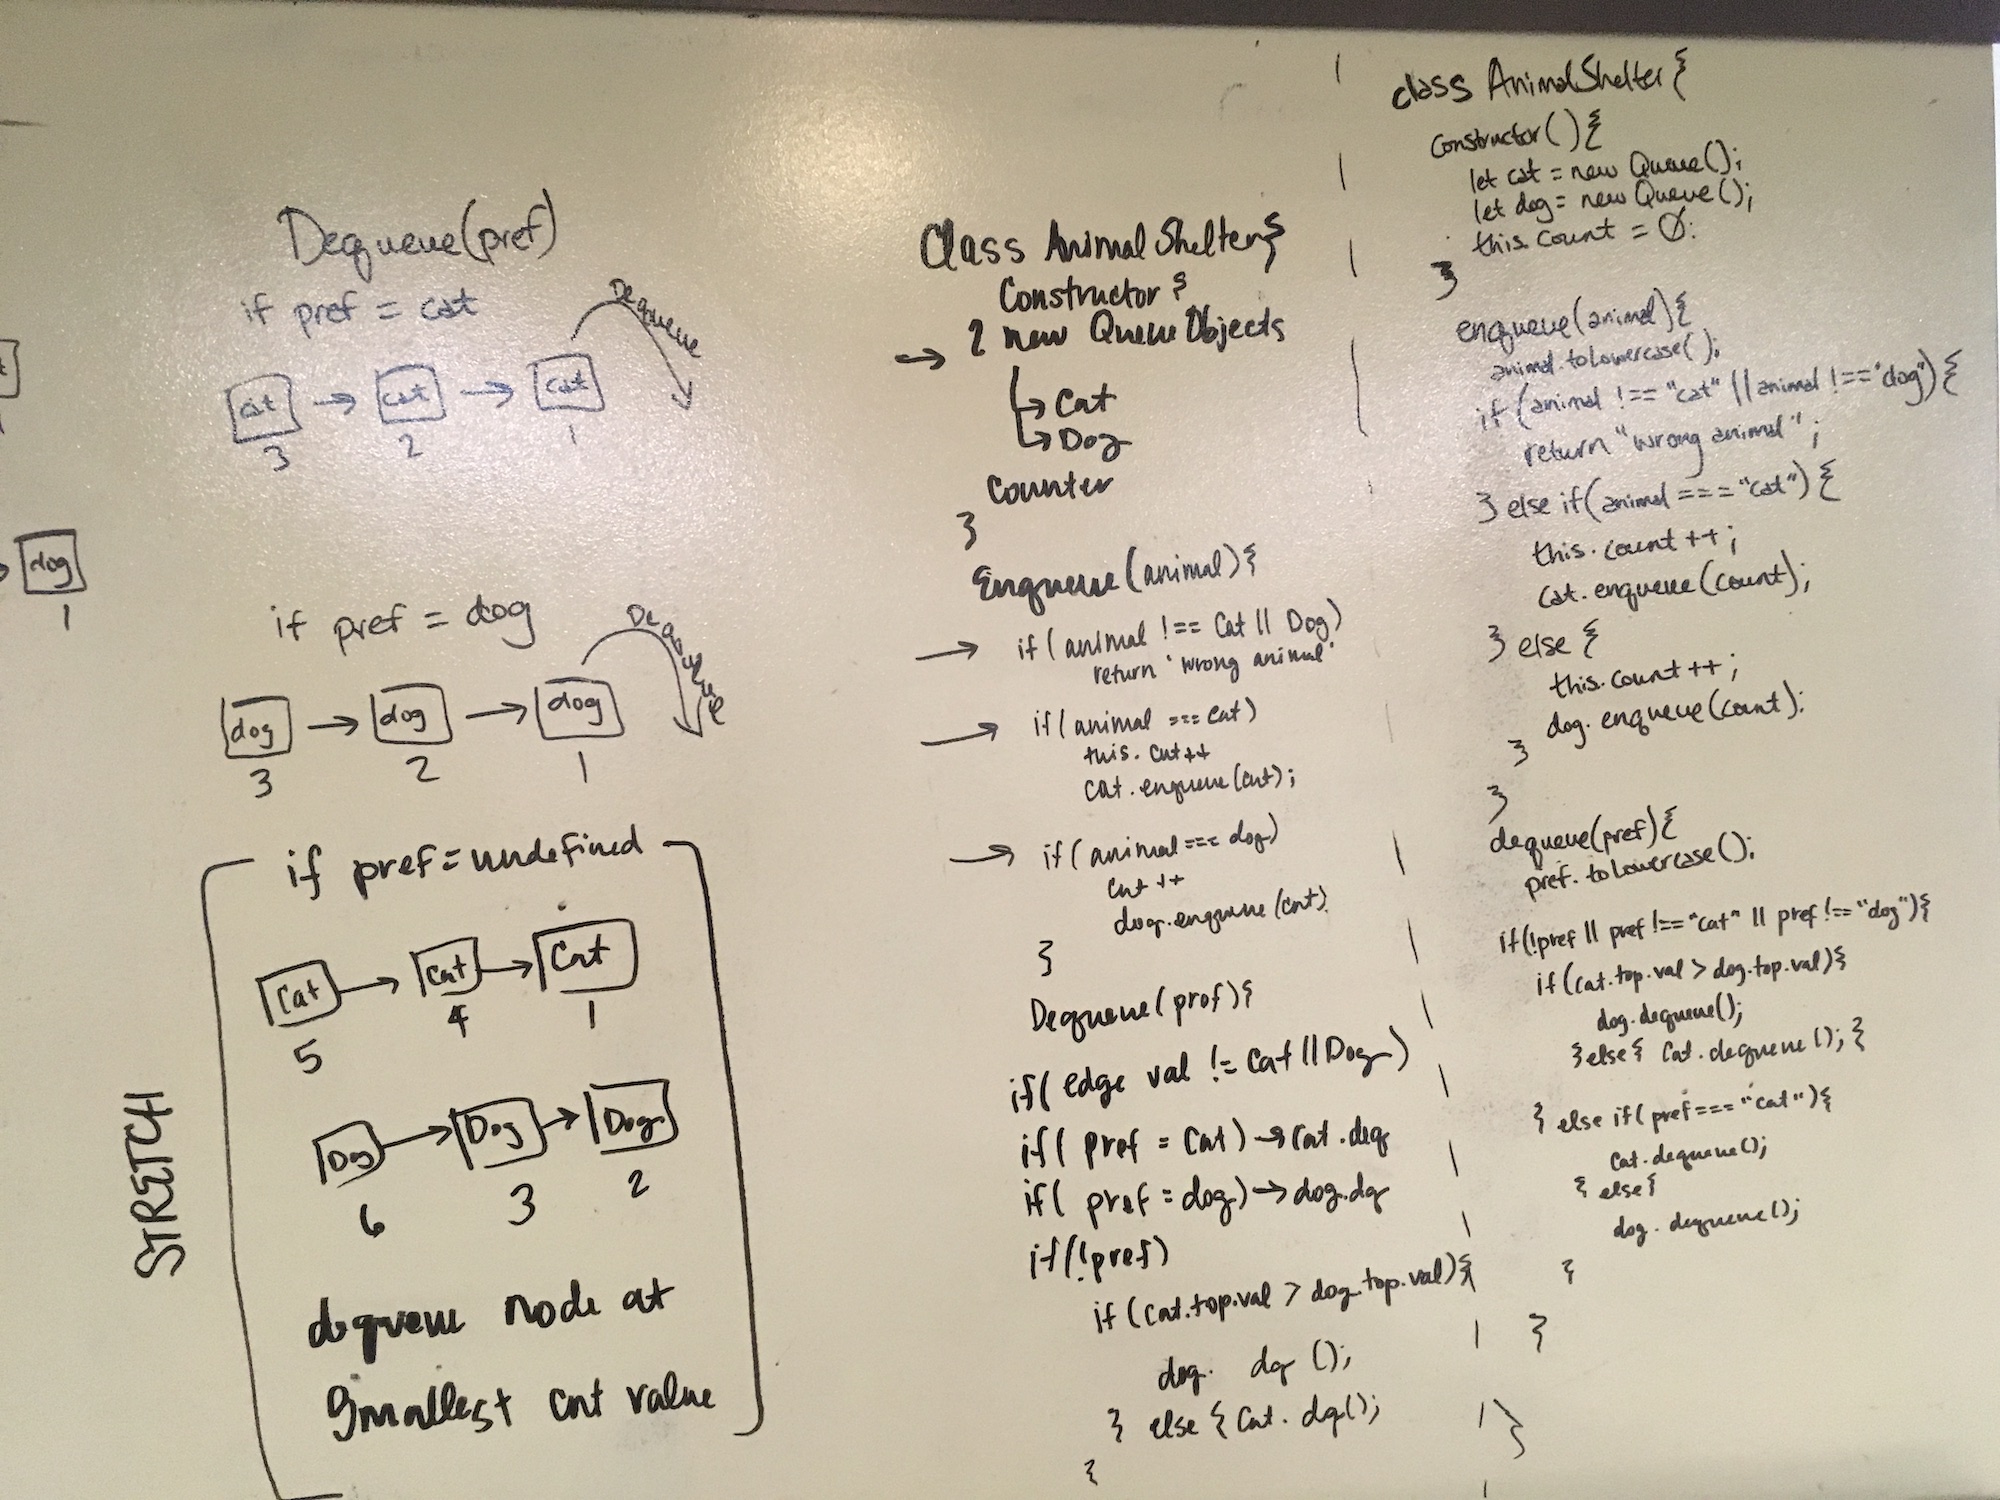 Dequeue(pref)
if pref = cat
Dequeue
cat → cat → cat
3 2 1
dog
1
if pref = dog
Dequeue
dog → dog → dog
3 2 1
STRETCH
if pref = undefined
Cat → Cat → Cat
5 4 1
Dog → Dog → Dog
6 3 2
dequeue node at
smallest cnt value
Class AnimalShelter{
Constructor {
→ 2 new Queue Objects
→ Cat
→ Dog
Counter
}
Enqueue(animal){
→ if (animal !== Cat || Dog)
return 'wrong animal'
→ if(animal === cat)
this. cnt++
cat.enqueue(cnt);
→ if(animal === dog)
cnt ++
dog.enqueue(cnt).
}
Dequeue(pref){
if( edge val != Cat || Dog)
if( pref = Cat) → cat.deq
if( pref = dog) → dog.dq
if(!pref)
if (cat.top.val > dog.top.val){
dog. dq ();
} else { Cat. dq();
}
class AnimalShelter{
constructor(){
let cat = new Queue();
let dog = new Queue();
this.count = 0;
}
enqueue(animal){
animal.toLowercase();
if (animal !== "cat" || animal !== "dog"){
return "wrong animal";
} else if(animal === "cat"){
this.count++;
cat.enqueue(count);
} else {
this.count++;
dog.enqueue(count);
}
}
dequeue(pref){
pref.toLowercase();
if(!pref || pref !== "cat" || pref !== "dog"){
if(cat.top.val > dog.top.val){
dog.dequeue();
} else { Cat.dequeue(); }
} else if( pref === "cat"){
Cat.dequeue();
} else {
dog.dequeue();
}
}
}